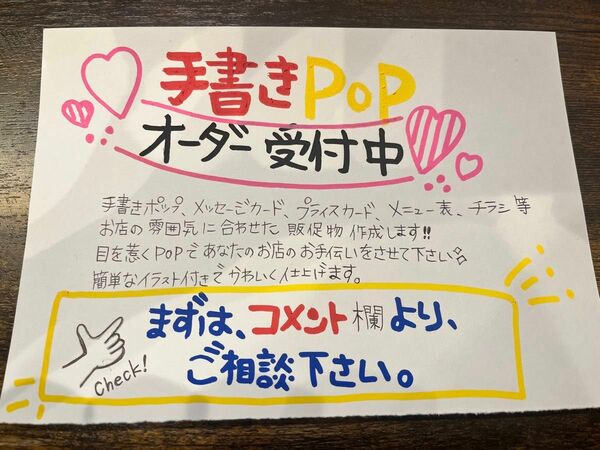 手書きPOP
オーダー受付中
手書きポップ、メッセージカード、プライスカード、メニュー表、チラシ等
お店の雰囲気に合わせた販促物作成します!!
目を惹くPOPであなたのお店のお手伝いをさせて下さい
簡単なイラスト付きでかわいく仕上げます。
まずは、コメント欄より、
ご相談下さい。
Check!